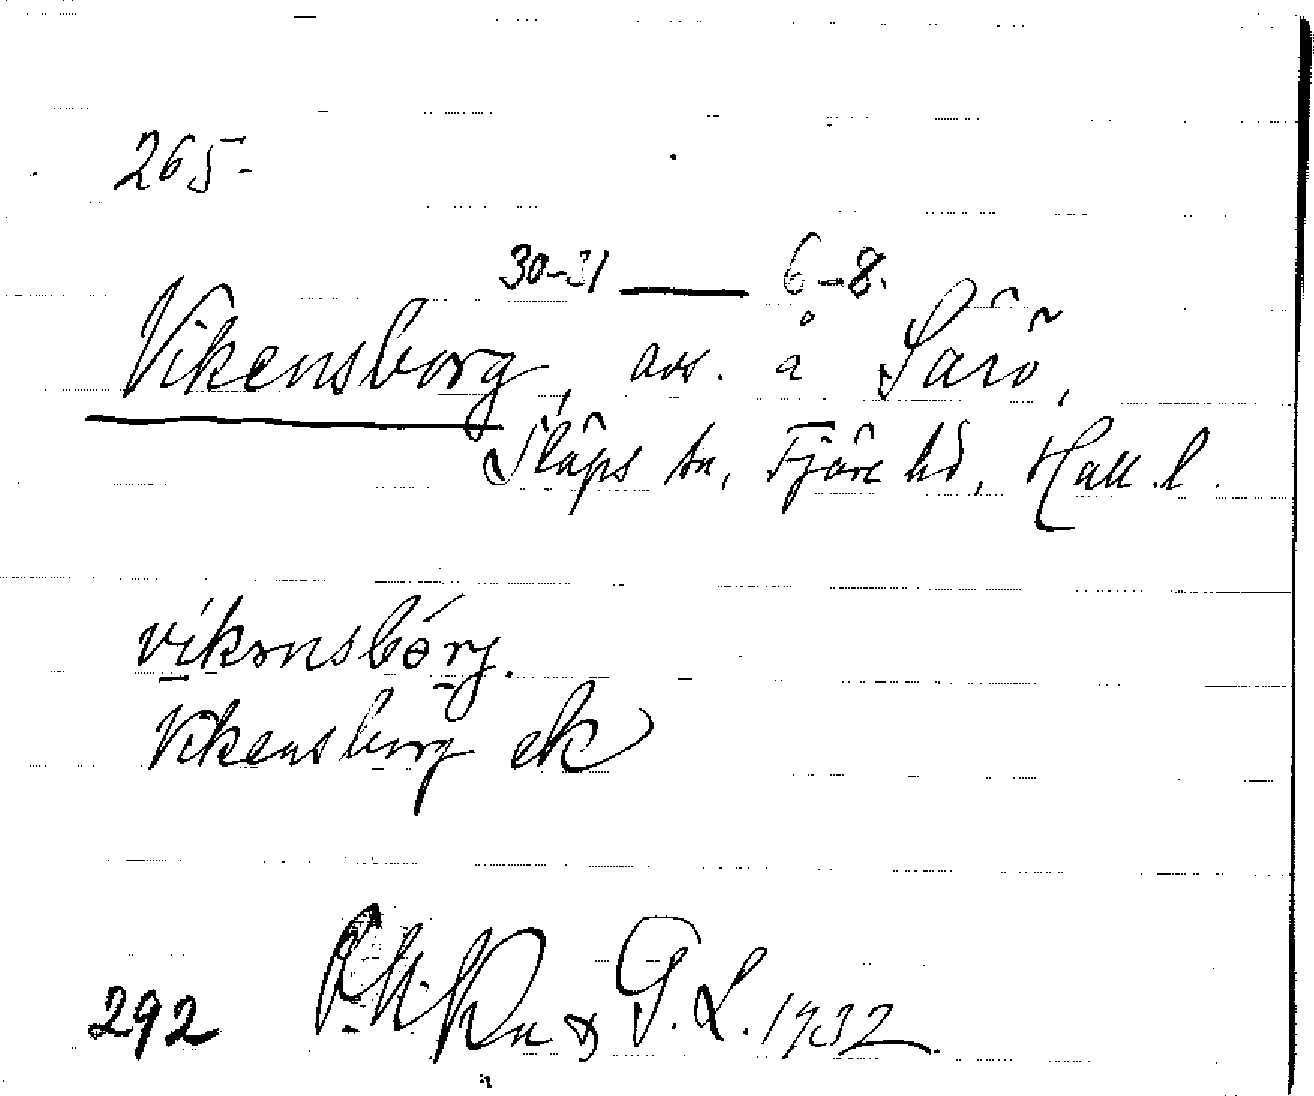 265.
30-31 — 6-8.
Vikensborg, avs. å Särö,
Släps sn, Fjäre hd, Hall. l.
víkɘnsbórj.
Vikensborg ek
292 & G. L. 1932.